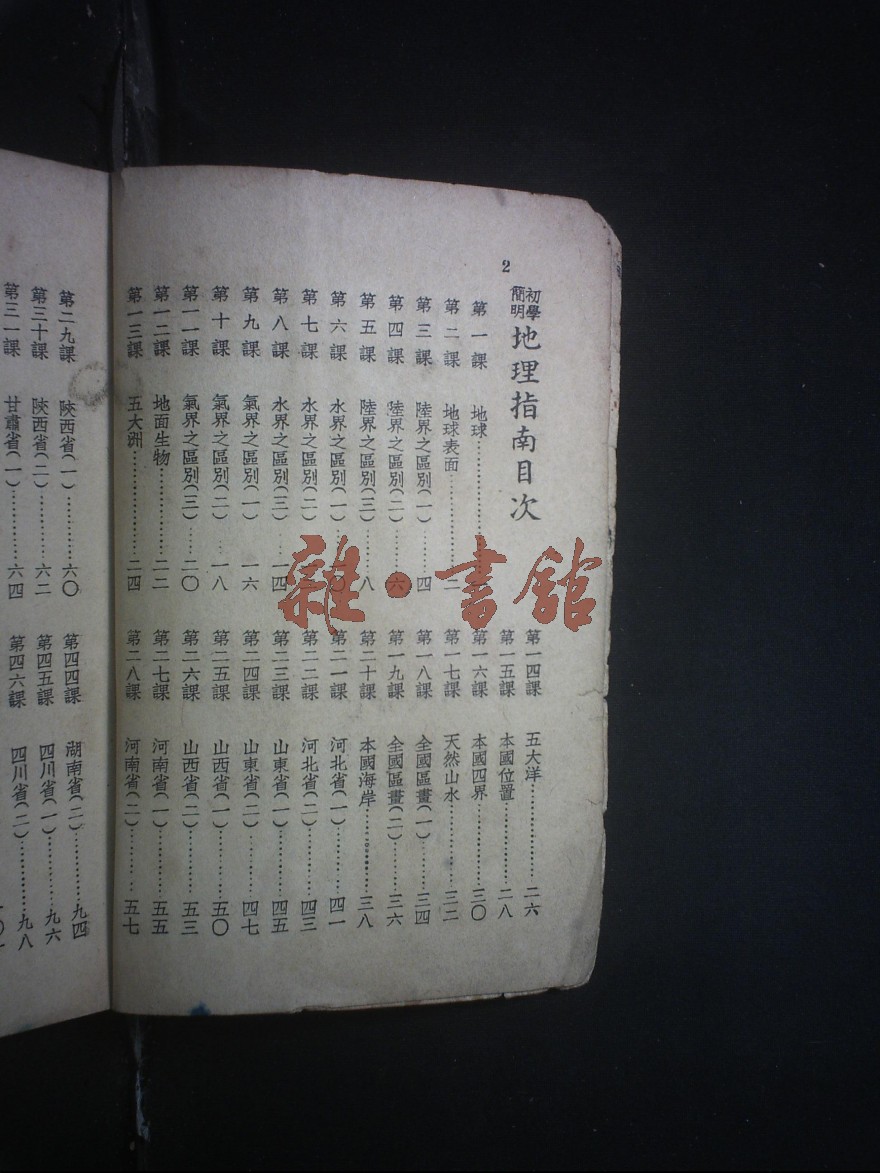 2
初學簡明地理指南目次
第一課 地球………………
第二課 地球表面……………二
第三課 陸界之區別(一)………四
第四課 陸界之區別(二)………六
第五課 陸界之區別(三)………八
第六課 水界之區別(一)…一〇
第七課 水界之區別(二)
第八課 水界之區別(三)…一四
第九課 氣界之區別(一)…一六
第十課 氣界之區別(二)…一八
第一一課 氣界之區別(三)…二〇
第一二課 地面生物…………二二
第一三課 五大洲……………二四
第一四課 五大洋……………二六
第一五課 本國位置…………二八
第一六課 本國四界…………三〇
第一七課 天然山水…………三二
第一八課 全國區畫(一)………三四
第一九課 全國區畫(二)………三六
第二十課 本國海岸…………三八
第二一課 河北省(一)…………四一
第二二課 河北省(二)…………四三
第二三課 山東省(一)…………四五
第二四課 山東省(二)…………四七
第二五課 山西省(一)…………五〇
第二六課 山西省(二)…………五三
第二七課 河南省(一)…………五五
第二八課 河南省(二)…………五七
第二九課 陝西省(一)…………六〇
第三十課 陝西省(二)…………六二
第三一課 甘肅省(一)…………六四
第四四課 湖南省(二)…………九四
第四五課 四川省(一)…………九六
第四六課 四川省(二)…………九八
雜·書館